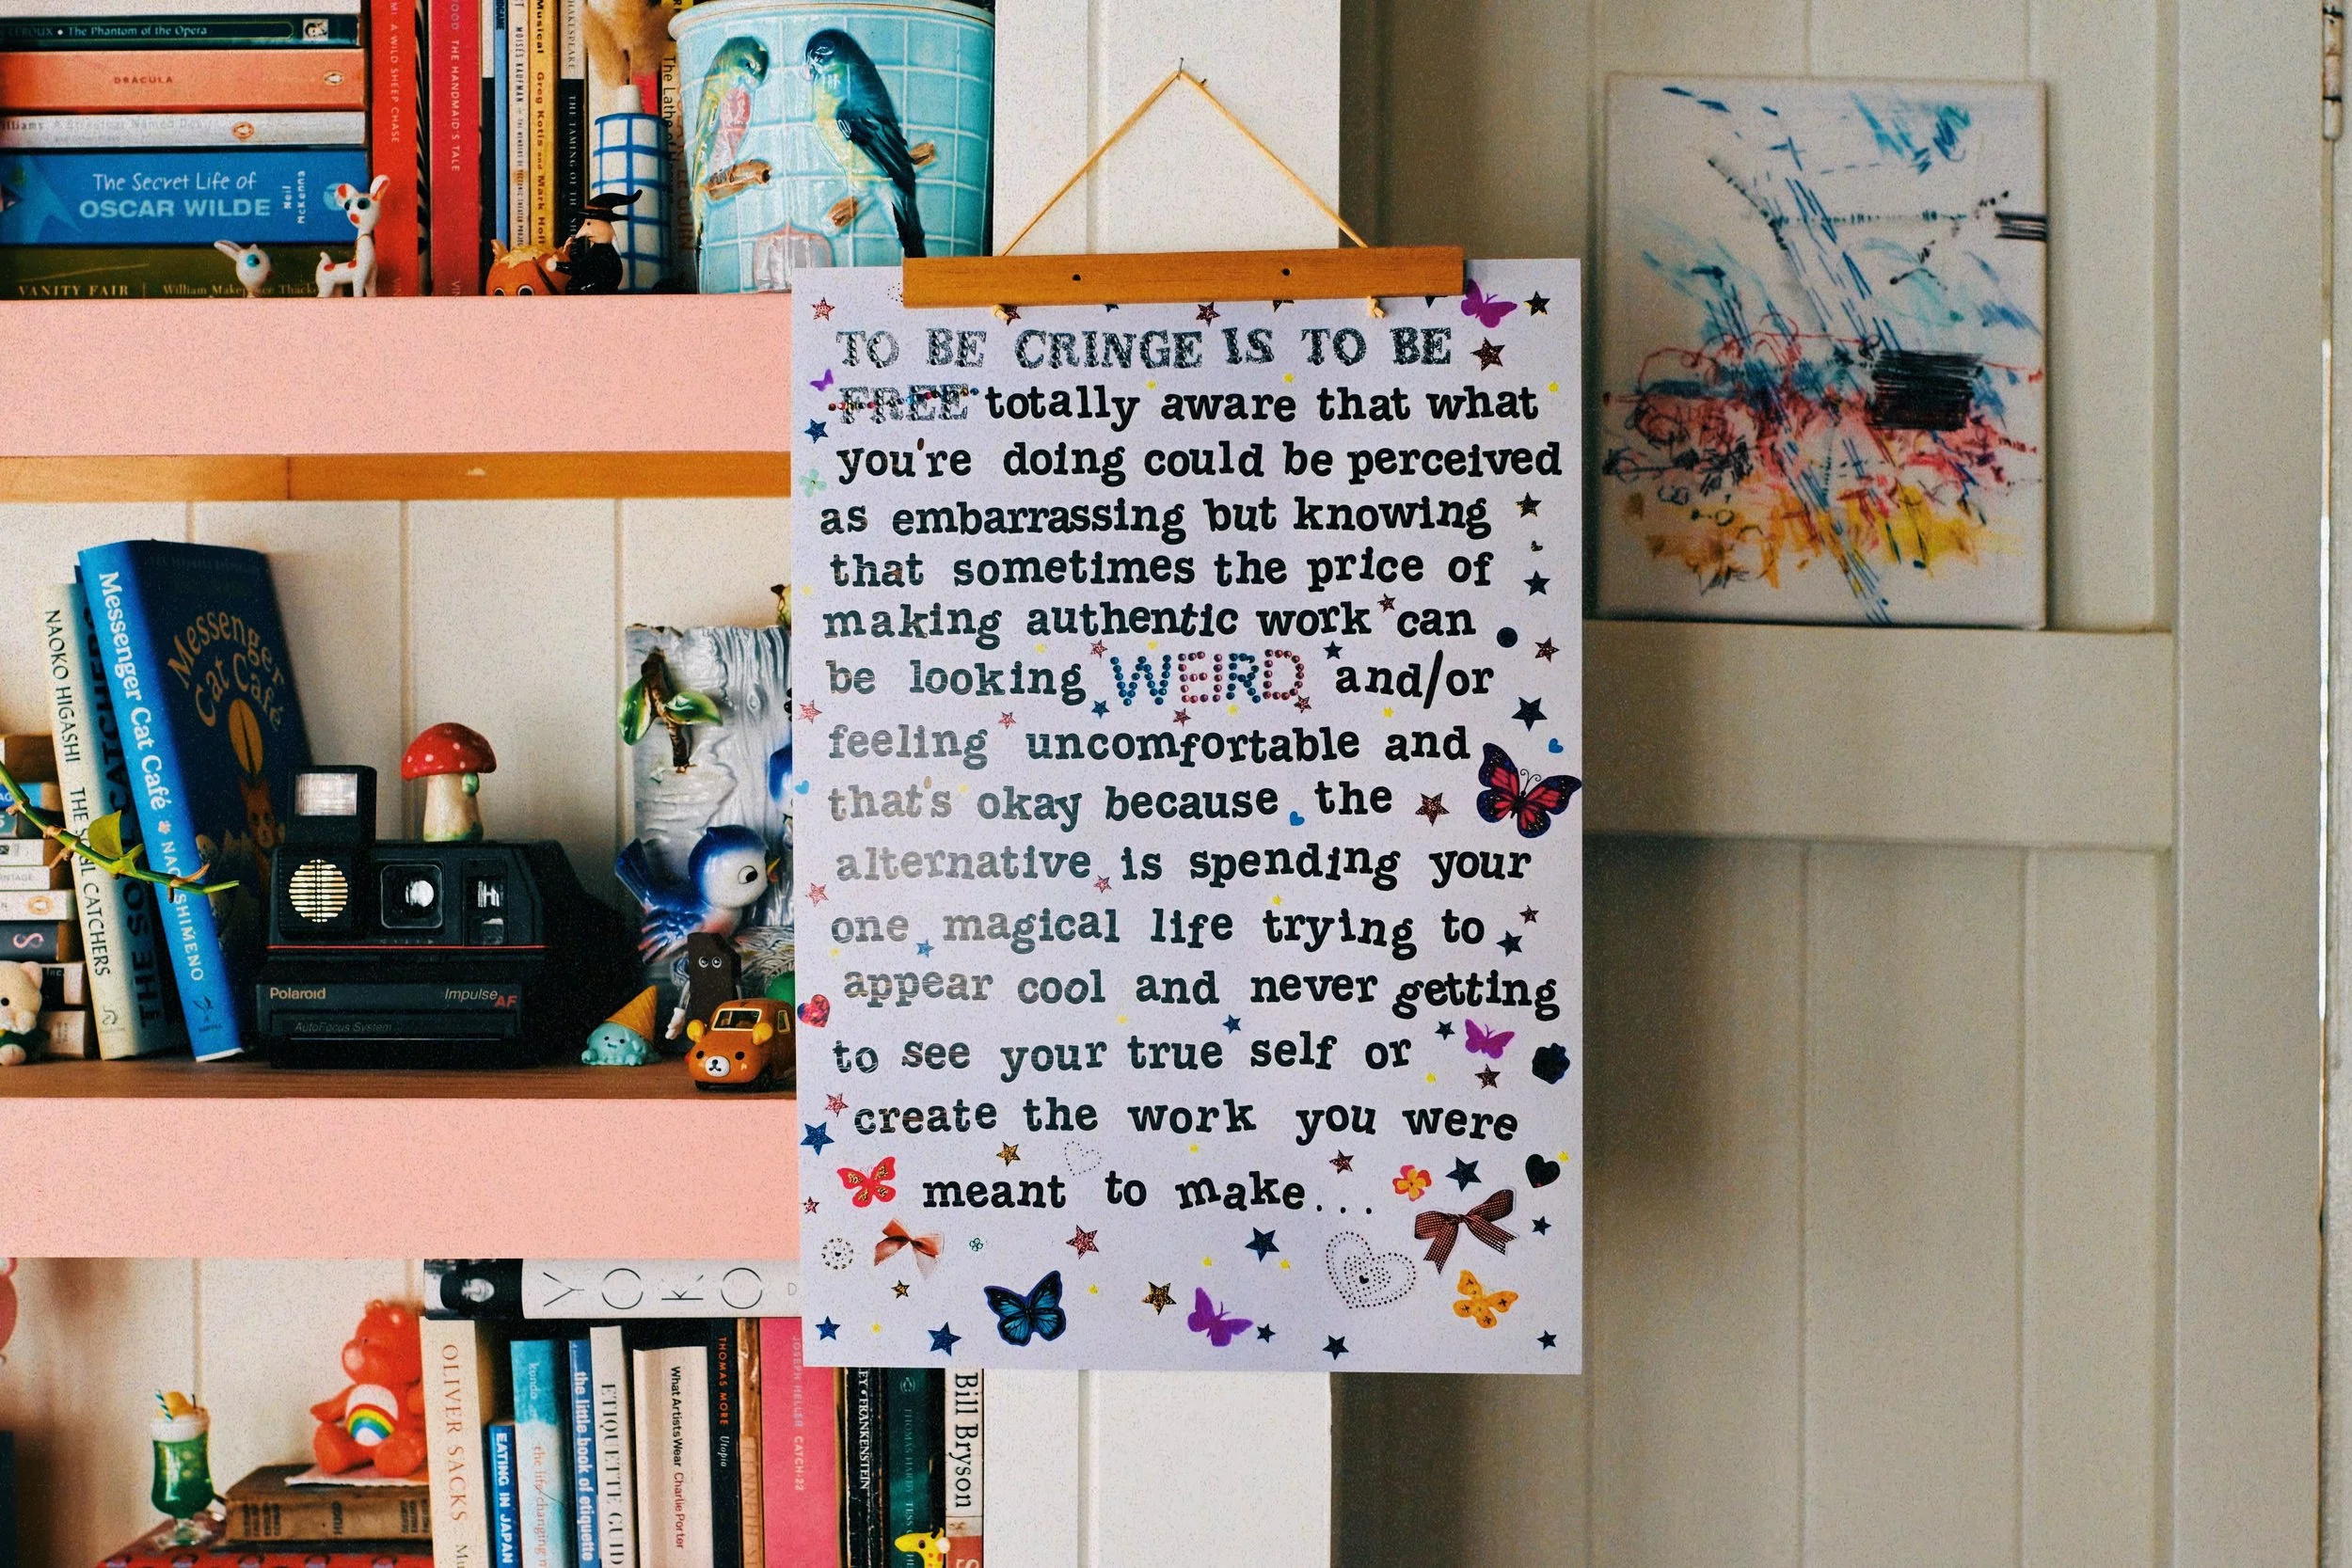 LEROUX • The Phantom of the Opera
DRACULA
The Secret Life of
OSCAR WILDE
Neil
McKenna
VANITY FAIR
A WILD SHEEP CHASE
THE HANDMAID'S TALE
MOISÉS KAUFMAN
Musical Greg Kotis and Mark
SHAKESPEARE
THE TAMING OF
The Lathe of
TO BE CRINGE IS TO BE
FREE totally aware that what
you're doing could be perceived
as embarrassing but knowing
that sometimes the price of
making authentic work can
be looking WEIRD and/or
feeling uncomfortable and
that's okay because the
alternative is spending your
one magical life trying to
appear cool and never getting
to see your true self or
create the work you were
meant to make...
NAOKO HIGASHI
CATCHERS
Messenger Cat Café
Messenger
Cat Café
Polaroid
Impulse AF
AutoFocus System
YOKO
OLIVER SACKS
EATING IN JAPAN
kondo
the life-changing
the little book of etiquette
ETIQUETTE GUID
What Artists Wear Charlie Porter
THOMAS MORE Utopia
JOSEPH HELLER CATCH-22
FRANKENSTEIN
THOMAS HARDY TESS
Bill Bryson